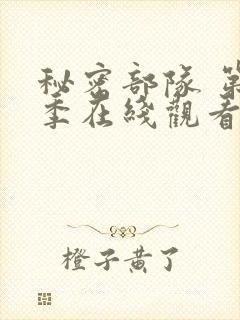 秘密部隊 第
季在綫觀看
橙子黃了